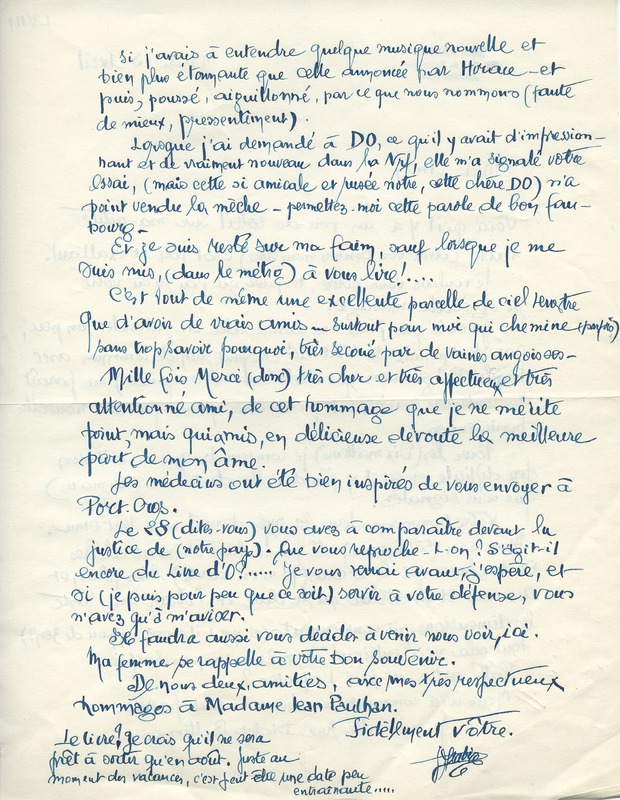 si j'avais à entendre quelque musique nouvelle et
bien plus étonnante que celle annoncée par Horace _ et
puis, poussé, aiguillonné, par ce que nous nommons (faute
de mieux, pressentiment).
Lorsque j'ai demandé à DO, ce qu'il y avait d'impression-
nant et de vraiment nouveau dans la Nrf, elle m'a signalé votre
essai, (mais cette si amicale et rusée nôtre, cette chère DO) n'a
point vendre la mèche _ permettez-moi cette parole de bon fau-
bourg _
Et je suis resté sur ma faim, sauf lorsque je me
suis mis, (dans le métro) à vous lire!....
C'est tout de même une excellente parcelle de ciel terrestre
que d'avoir de vrais amis _ surtout pour moi qui chemine (parfois)
sans trop savoir pourquoi, très secoué par de vaines angoisses _
Mille fois Merci (donc) très cher et très affectueux et très
attentionné ami, de cet hommage que je ne mérite
point, mais qui a mis, en délicieuse déroute la meilleure
part de mon âme.
Les médecins ont été bien inspirés de vous envoyer à
Port-Cros.
Le 28 (dites-vous) vous avez à comparaître devant la
justice de (notre pays). Que vous reproche-t-on? S'agit-il
encore du Livre d'O?..... Je vous verrai avant, j'espère, et
si (je puis pour peu que ce soit) servir à votre défense, vous
n'avez qu'à m'aviser.
Il faudra aussi vous décider à venir nous voir, ici.
Ma femme se rappelle à votre bon souvenir.
De nous deux, amitiés, avec mes très respectueux
hommages à Madame Jean Paulhan.
Fidèlement vôtre.
Le livre? Je crois qu'il ne sera
prêt à sortir qu'en août. Juste au
moment des vacances, c'est peut-être une date peu
entraînante.....